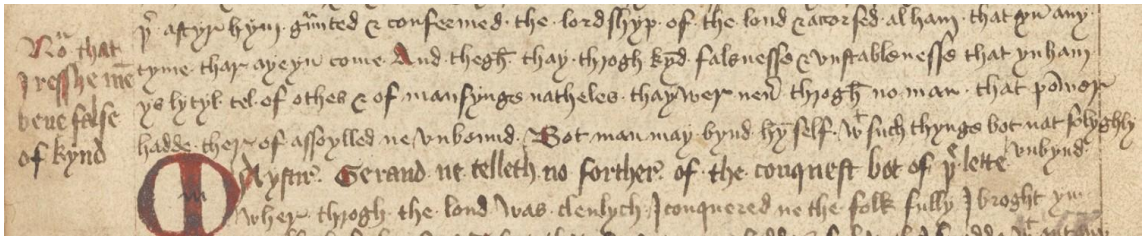 Nota that
Iresshe men
beue false
of kynd
pe aftyr hym graunted & confermed the lordshyp of the lond & acorsed al ham that yn any
tyme thar ayeyn come And thegh thay throgh kynd falsnesse & vnstablenesse that yn ham
ys lytyl tel of othes & of mansynge natheles thay wer neuer throgh no man that power
hadde ther of assoylled ne vnbound Bot man may bynd hym self wt such thynge bot nat so lyghly
vnbynd
Maystre Geraud ne telleth no forther of the conquest bot of pe lette
wher throgh the lond was clenlych I conquered ne the folk fully I broght yn